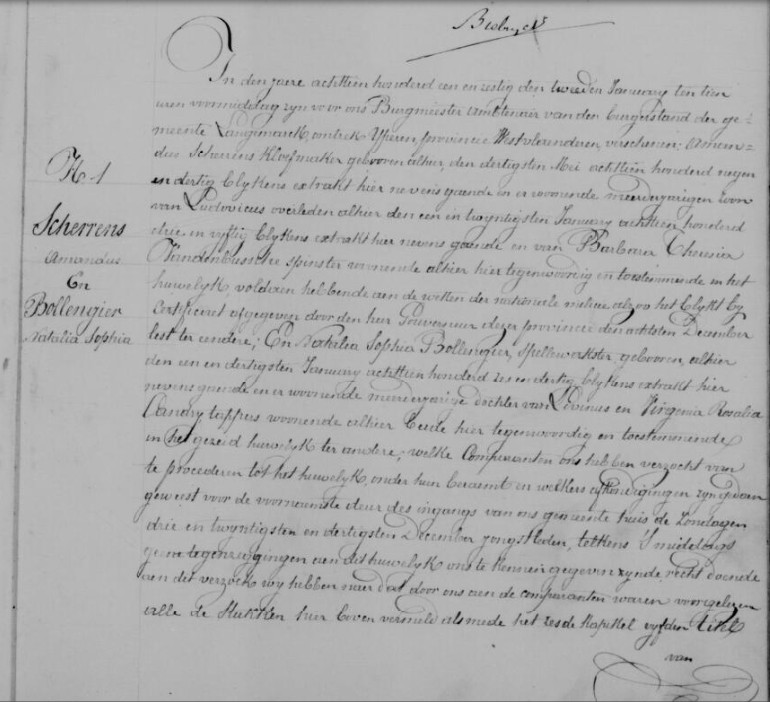 In den jaere achttien honderd een en zestig den tweeden January ten tien
uren voormiddag zyn voor ons Burgmeester ambtenaer van den burgerstand der ge=
meente Langemarck, omtrek Yperen, provincie Westvlaenderen, verschenen; Aman=
N 1
dus Scherrens Kloefmaker gebooren alhier, den dertigsten Mei achttien honderd negen
en dertig blykens extrakt hier nevens gaende en er woonende meerderjarigen zoon
Scherrens
van Ludovicus overleden alhier den een en twyntigsten January achttien honderd
Amandus
drie en vyftig blykens extrakt hier nevens gaende en van Barbara Theresia
En
Vandenbussche spinster woonende alhier hier tegenwoordig en toestemmende in het
Bollengier
huwelyk, voldaen hebbende aen de wetten der nationale melicie alzoo het blykt by
Natalia Sophia
certificaet afgegeven door den heer Gouverneur dezer provincie den achtsten December
lest ter eendere; En Natalia Sophia Bollengier, spellewerkster, gebooren alhier
den een en dertigsten January achttien honderd zes en dertig blykens extrakt hier
nevens gaende en er woonende meerderjarige dochter van Livinus en Virginia Rosalia
Candry tappers woonende alhier beide hier tegenwoordig en toestemmende
in het gezeid huwelyk ter andere; welke Comparanten ons hebben verzocht van
te procederen tot het huwelyk, onder hun beraemt en welkers afkondigingen zyn gedaen
geweest voor de voornaemste deur des ingangs van ons gemeente huis de Zondagen
drie en twyntigsten en dertigsten December jongstleden, telkens S'middags
geene tegenzeggingen aen dit huwelyk ons te kennen gegeven zynde, recht doende
aen dit verzoek wy hebben naer dat door ons aen de comparanten waren voorgelezen
alle de stukken hier boven vermeld alsmede het zesde Kapittel vyfden titel
van